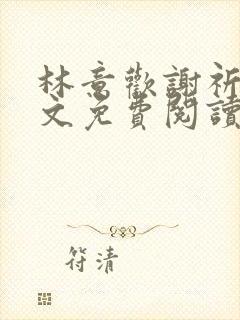 林意歡謝祈
文免費閱讀
符清